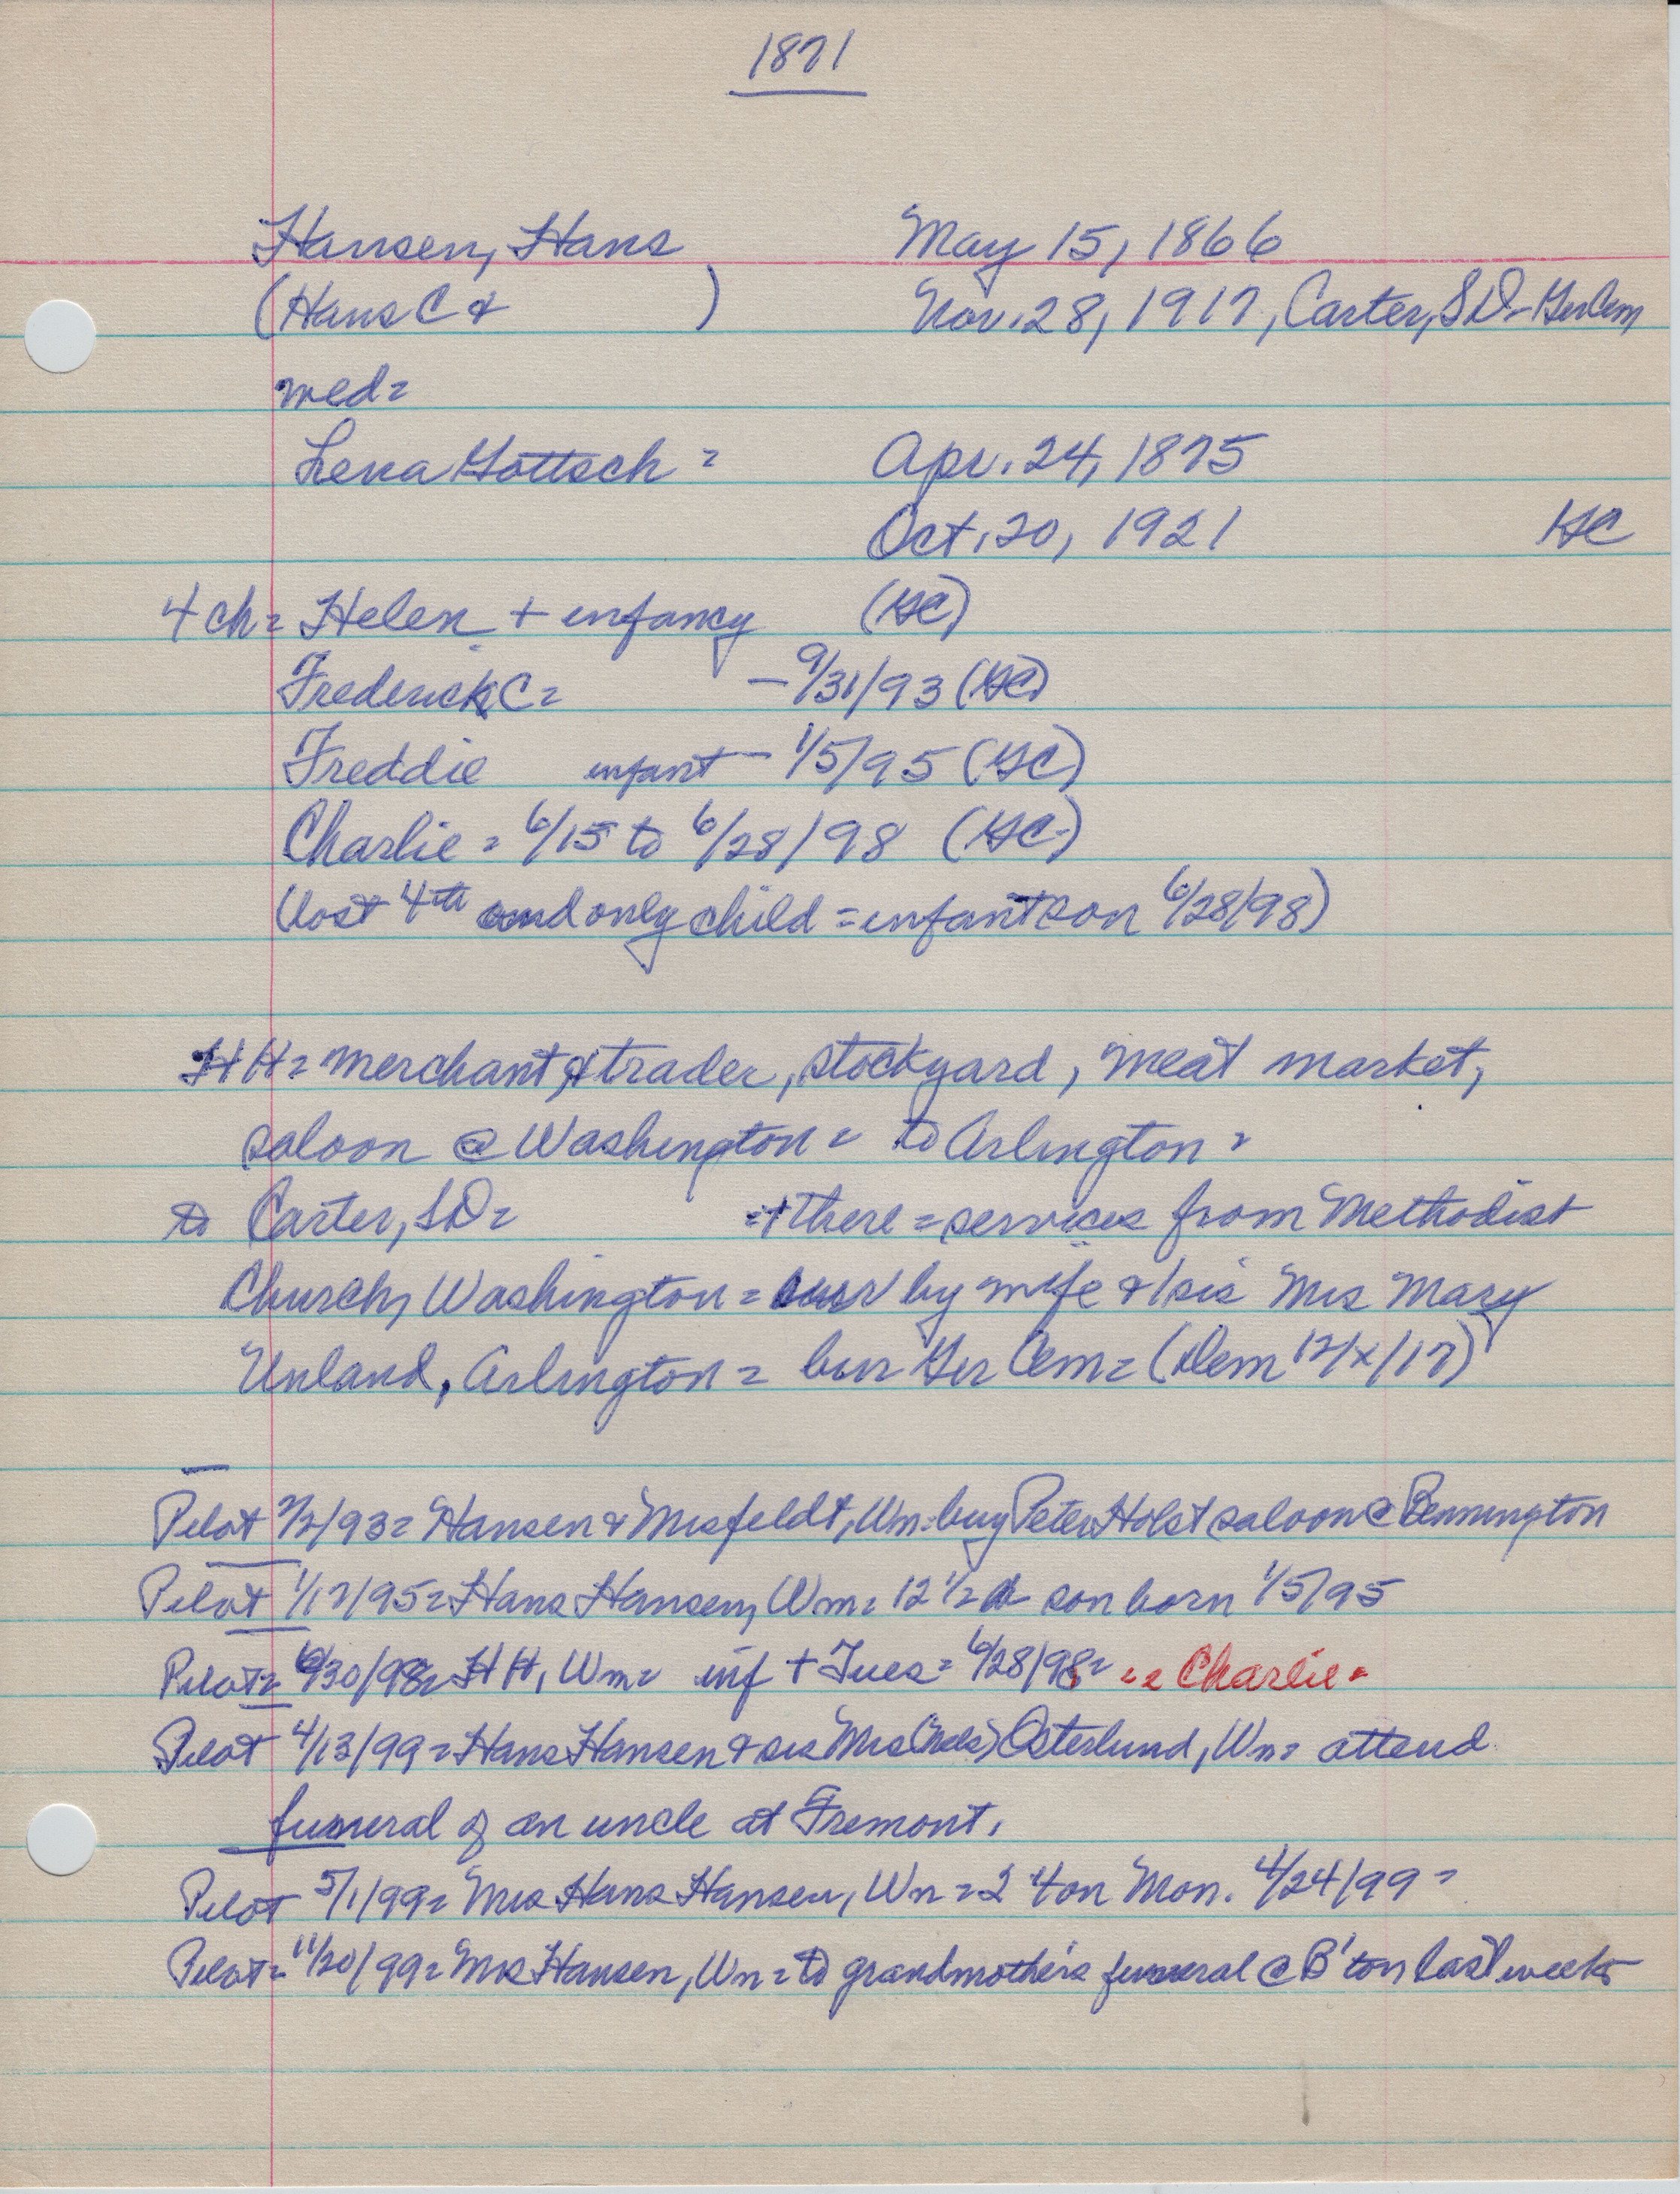 1871
Hansen, Hans May 15, 1866
(Hans C & ) Nov. 28, 1917, Carter, SD - Ger Cem
wed =
Lena Gottsch = Apr. 24, 1875
Oct. 20, 1921 GC
4 ch = Helen + infancy (GC)
Frederick C = - 9/31/93 (GC)
Freddie infant - 1/5/95 (GC)
Charlie = 6/15 to 6/28/98 (GC)
(lost 4th and only child = infant son 6/28/98)
HH = merchant & trader, stockyard, meat market,
saloon @ Washington = to Arlington =
to Carter, SD = + there = services from Methodist
Church, Washington = sur by wife & 1 sis Mrs Mary
Unland, Arlington = bur Ger Cem = (Dem 12/x/17)
Pilot 2/2/93 = Hansen & Misfeldt, Wn = buy Peter Holst saloon @ Bennington
Pilot 1/17/95 = Hans Hansen, Wn = 12 1/2 # son born 1/5/95
Pilot = 6/30/98 = HH, Wn = inf + Tues = 6/28/98 = = Charlie =
Pilot 4/13/99 = Hans Hansen & sis Mrs (Nels) Osterlund, Wn = attend
funeral of an uncle at Fremont.
Pilot 5/1/99 = Mrs Hans Hansen, Wn = 24 on Mon. 4/24/99 =
Pilot = 11/20/99 = Mrs Hansen, Wn = to grandmother's funeral @ B'ton last week